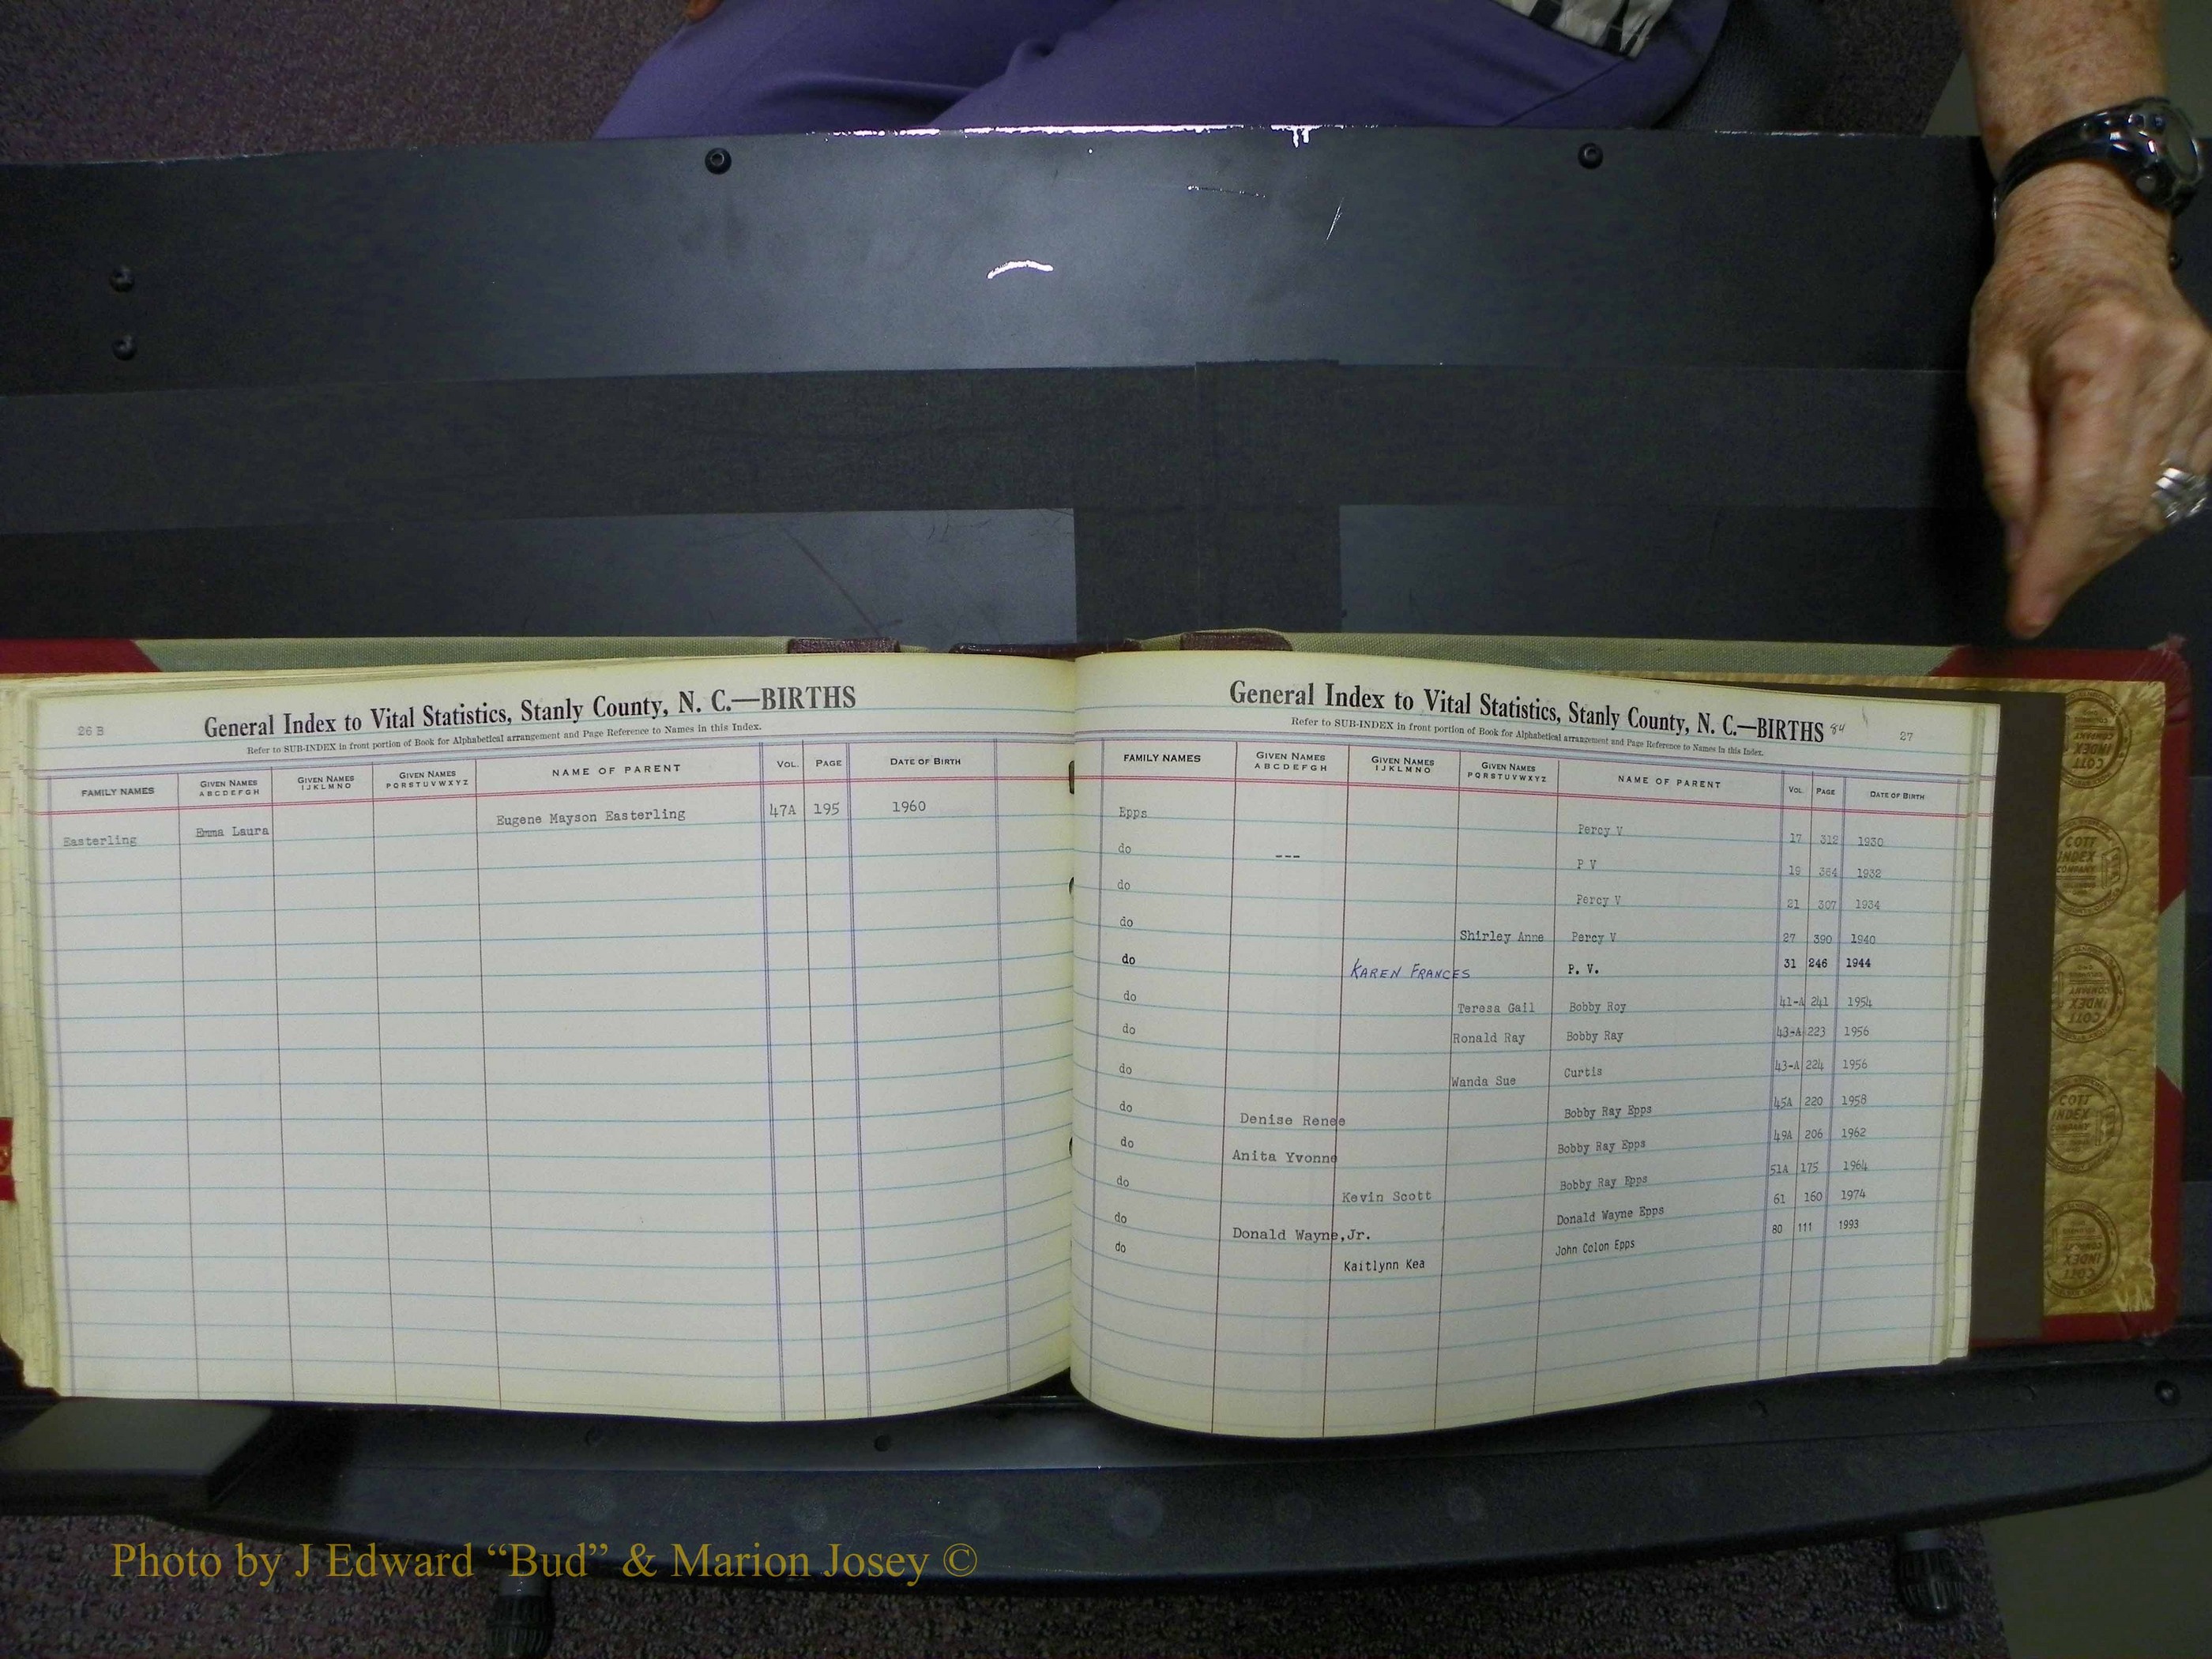 26 B
General Index to Vital Statistics, Stanly County, N. C.—BIRTHS
Refer to SUB-INDEX in front portion of Book for Alphabetical arrangement and Page Reference to Names in this Index.
FAMILY NAMES GIVEN NAMES ABCDEFGH GIVEN NAMES IJKLMNO GIVEN NAMES PQRSTUVWXYZ NAME OF PARENT VOL. PAGE DATE OF BIRTH
Easterling Emma Laura Eugene Mayson Easterling 47A 195 1960
General Index to Vital Statistics, Stanly County, N. C.—BIRTHS 84 27
Refer to SUB-INDEX in front portion of Book for Alphabetical arrangement and Page Reference to Names in this Index.
FAMILY NAMES GIVEN NAMES ABCDEFGH GIVEN NAMES IJKLMNO GIVEN NAMES PQRSTUVWXYZ NAME OF PARENT VOL PAGE DATE OF BIRTH
Epps Percy V 17 312 1930
do --- P V 19 364 1932
do Percy V 21 307 1934
do Shirley Anne Percy V 27 390 1940
do KAREN FRANCES P. V. 31 246 1944
do Teresa Gail Bobby Roy 41-A 241 1954
do Ronald Ray Bobby Ray 43-A 223 1956
do Wanda Sue Curtis 43-A 224 1956
do Denise Renee Bobby Ray Epps 45A 220 1958
do Anita Yvonne Bobby Ray Epps 49A 206 1962
do Kevin Scott Bobby Ray Epps 51A 175 1964
do Donald Wayne,Jr. Donald Wayne Epps 61 160 1974
do Kaitlynn Kea John Colon Epps 80 111 1993
COTT INDEX COMPANY
COTT INDEX COMPANY
COTT INDEX COMPANY
COTT INDEX COMPANY
COTT INDEX COMPANY
Photo by J Edward “Bud” & Marion Josey ©